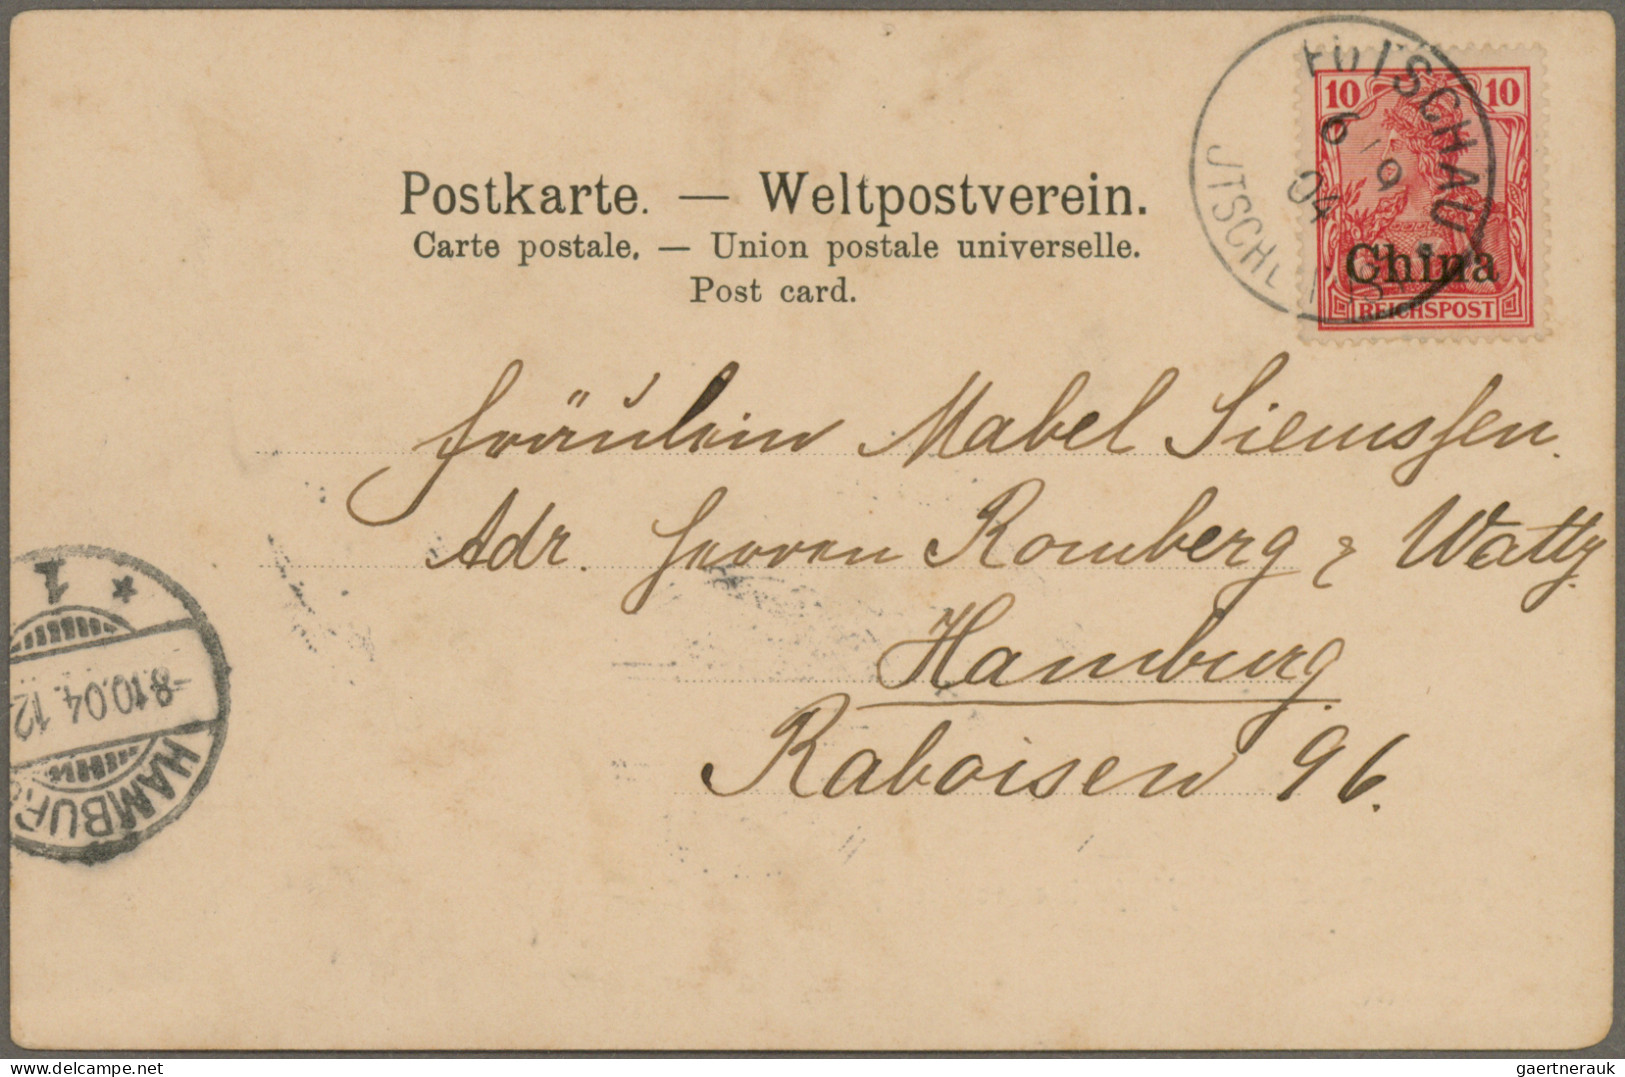 FUTSCHAU
6/9
04
10 10
China
REICHSPOST
Postkarte. — Weltpostverein.
Carte postale. — Union postale universelle.
Post card.
Fräulein Mabel Siemssen.
Adr. Herren Romberg & Watty
Hamburg
Raboisen 96.
1
-8.10.04. 12
HAMBURG
gaertnerauk